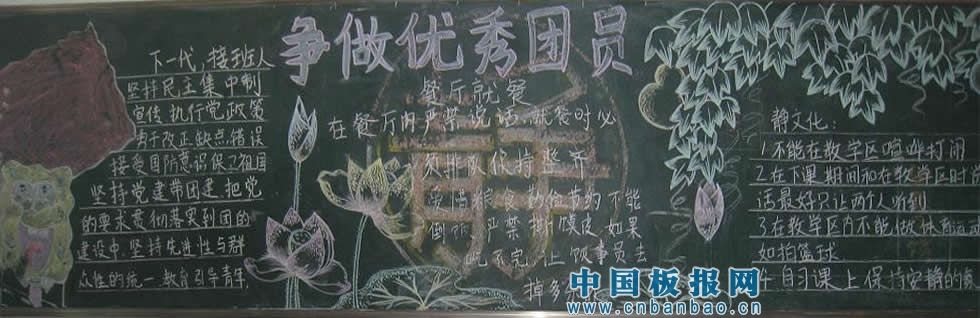 争做优秀团员
下一代,接班人
坚持民主集中制
宣传执行党政策
勇于改正缺点错误
接受国防意识保卫祖国
坚持党建带团建,把党
的要求贯彻落实到团的
建设中,坚持先进性与群
众性的统一,教育引导青年,
餐厅就餐
在餐厅内严禁说话,就餐时必
须排队保持整齐
粮食的 不能
倒 严禁 如果
吃不完,让 员去
掉多
静文化:
1不能在教学区喧哗打闹
2在下课期间和在教学区时讲
话最好只让两人听到
3在教学区内不能做体育运动
如拍篮球
自习课上保持安静的
中国板报网
www.cnbanbao.cn